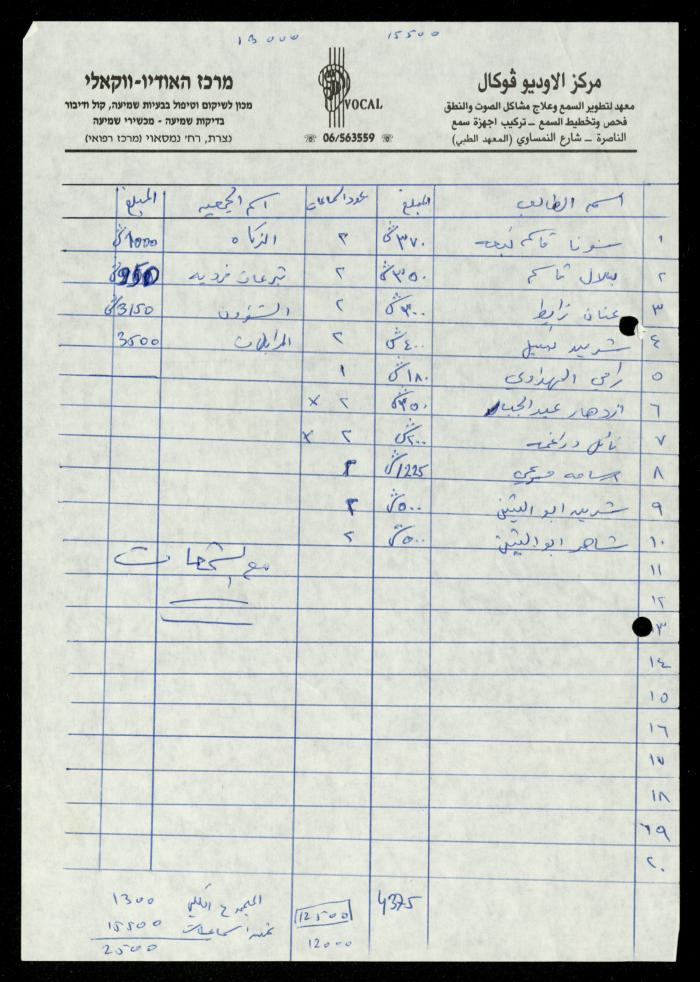 13000 15500
مركز الاوديو ڤوكال
معهد لتطوير السمع وعلاج مشاكل الصوت والنطق
فحص وتخطيط السمع ــ تركيب اجهزة سمع
الناصرة ــ شارع النمساوي (المعهد الطبي)
VOCAL
☏ 06/563559 ☏
מרכז האודיו-ווקאלי
מכון לשיקום וטיפול בבעיות שמיעה, קול ודיבור
בדיקות שמיעה - מכשירי שמיעה
נצרת, רח' נמסאוי (מרכז רפואי)
اسم الطالب المبلغ عدد السماعات اسم الجمعيه المبلغ
١ قاسم ٣٧٠ ٣ الزكاه 1000
٢ بلال قاسم ٣٥٠ ٢ تبرعات فرديه 950
٣ عنان ٣٠٠ ٢ الشؤون 3150
٤ ٤٠٠ ٢ 3500
٥ رامي ١٨٠ ١
٦ ازدهار عبد الجبار ٣٥٠ ٢ x
٧ نائل دراغمه ٢٠٠ ٢ x
٨ اسامه 1225
٩ ٥٠٠
١٠ ٥٠٠ ٢
١١ مع
١٢
١٣
١٤
١٥
١٦
١٧
١٨
١٩
٢٠
4375
12500
12000
المجموع الكلي 1300
ثمن السماعات 15500
2500